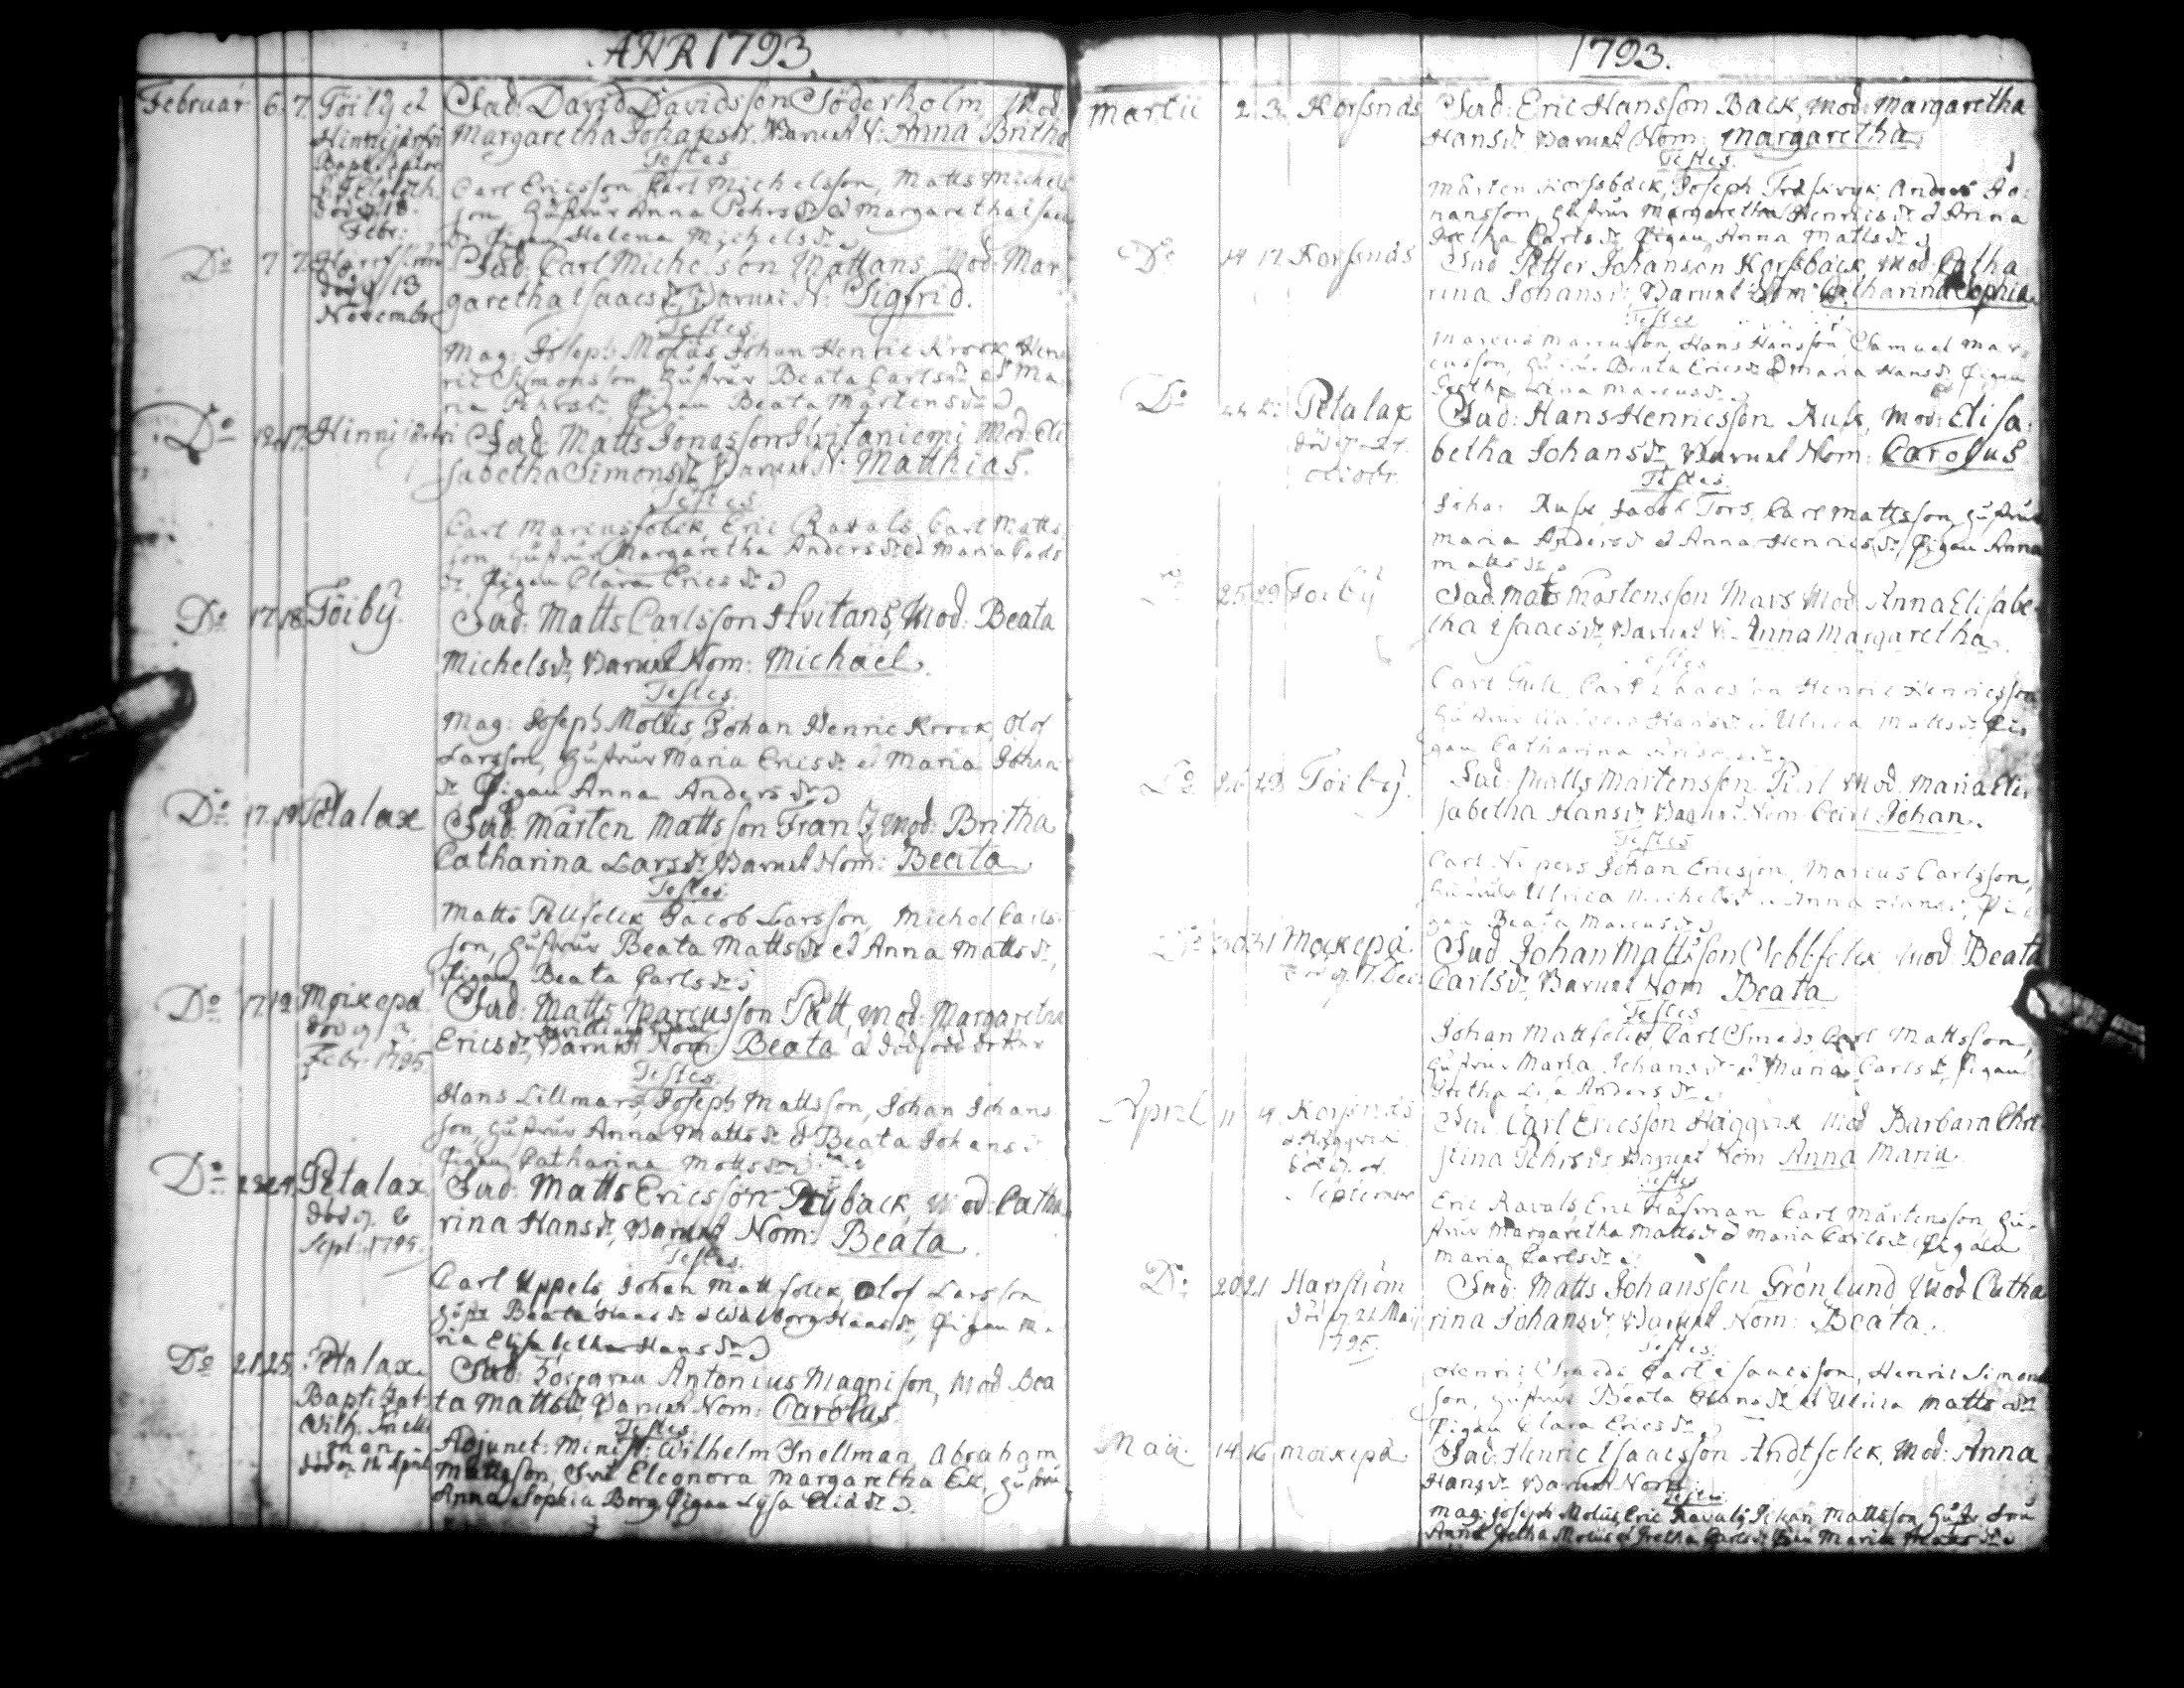 ANR 1793.
Februar 6. 7. Töiby et Fad: David Davidsson Söderholm, Mod:
Hinnisjärvi Margaretha Johansdr. Barnet N: Anna Britha
Testes
Carl Ericsson, Carl Michelsson, Matts Michels
son, Hustrur Anna Pehrs dr et Margaretha Isacs
död d. 18. Febr: dr Pigan Helena Michels dr
Do 7 Harrström Fad: Carl Michelson Mattans, Mod: Mar
död d 13 garetha Isaacs dr, Barnet N: Sigfrid.
Novembr Testes.
Mag: Joseph Molius, Johan Henric Krook, Hen
ric Simonsson, Hustrur Beata Carls dr et Ma
ria Pehrs dr, Pigan Beata Mårtens dr
Do 17. Hinnisjärvi Fad: Matts Jonasson Hvitaniemi Mod: Eli
sabetha Simons dr, Barnet N: Matthias.
Testes
Carl Marcusfolck, Eric Ravals, Carl Matts
son, Hustrur Margaretha Anders dr et Maria Carls
dr Pigan Clara Erics dr
Do 17. 18. Töiby. Fad: Matts Carlsson Hvitans, Mod: Beata
Michels dr, Barnet Nom: Michaël.
Testes.
Mag: Joseph Molius, Johan Henric Krook, Olof
Larsson, Hustrur Maria Erics dr et Maria Johans
dr Pigan Anna Anders dr
Do 17. 19. Petalax Fad: Mårten Mattsson Frantz, Mod: Britha
Catharina Lars dr Barnet Nom: Beata
Testes.
Matts Pellfolck, Jacob Larsson, Michel Carls
son, Hustrur Beata Matts dr et Anna Matts dr,
Pigan Beata Carls dr
Do 17. 19. Moikepä Fad: Matts Marcusson Pått, Mod: Margaretha
död d 3 Erics dr, Barnet Nom: Beata et dödfödd dotter
Febr. 1795. Testes.
Hans Lillmars, Joseph Mattsson, Johan Johans
son, Hustrur Anna Matts dr et Beata Johans dr
Pigan Catharina Matts dr
Do 23 24. Petalax Fad: Matts Ericsson Rybäck, Mod: Catha
död d. 6 rina Hans dr, Barnet Nom: Beata
Sept: 1795. Testes.
Carl Uppels, Johan Mattsfolck, Olof Larsson
Hustr Beata Hans dr et Walborg Hans dr, Pigan Ma
ria Elisabetha Hans dr
Do 21 25. Petalax Fad: Antonius Magnison, Mod Bea
Baptizat ta Matts dr, Barnet Nom: Carolus.
Wilh. Snell Testes.
man Adjunct: Minist: Wilhelm Snellman, Abraham
död d 14 April Mattsson, Fru Eleonora Margaretha Ek, Hustru
Anna Sophia Borg, Pigan Lisa
1793.
Martii 2 3. Korsnäs Fad: Eric Hansson Back, Mod: Margaretha
Hans dr Barnet Nom: Margaretha
Testes.
Mårten Korsbäck, Joseph Träskvik, Anders Jo
hansson, Hustrur Margaretha Henrics dr et Anna
Gretha Carls dr Pigan Anna Matts dr
Do 14 17. Korsnäs Fad Petter Johanson Korsbäck, Mod: Catha
rina Johans dr Barnet Nom: Catharina Sophia
Testes
Marcus Marcusson, Hans Hansson, Samuel Mar
cusson, Hustrur Beata Erics dr et Maria Hans dr Pigan
Gretha Lena Marcus dr
Do Petalax Fad: Hans Henricsson Rusk, Mod: Elisa
död d 27. betha Johans dr Barnet Nom: Carolus
Octobr. Testes.
Johan Rusk, Jacob Tors, Carl Mattsson, Hustrur
Maria Anders dr et Anna Henrics dr Pigan Anna
Matts dr
25 29 Töiby Fad. Mats Mårtensson Mars Mod. Anna Elisabe
tha Isaacs dr, Barnet N: Anna Margaretha.
Testes
Carl Gull, Carl Isaacsson Henric Henricsson
Hustrur Hans dr et Ulrica Matts dr, Pi
gan Catharina
Do 28 Töiby. Fad: Matts Mårtensson Mod. Maria Eli
sabetha Hans dr Barnet Nom: Carl Johan.
Testes
Carl Johan Ericsson, Marcus Carlsson,
Hustrur Ulrica Michels dr et Anna Hans dr, Pi
gan Beata Marcus dr
Do 30 31 Moikepä Fad Johan Mattsson Klebbfolck Mod: Beata
död d. 17. Dec: Carls dr, Barnet Nom Beata
Testes
Johan Mattfolck, Carl Smeds, Carl Mattsson,
Hustrur Maria Johans dr et Maria Carls dr, Pigan
Gretha Lisa Anders dr
April 11 14. Korsnäs Fad: Carl Ericsson Häggvik Mod Barbara Chri
Häggvik stina Pehrs dr Barnet Nom Anna Maria
September Testes
Eric Ravals, Eric Häsman Carl Mårtensson, Hu
strur Margaretha Matts dr et Maria Carls dr Pigan
Maria Carls dr
Do 20 21 Harrström Fad: Matts Johansson Grönlund Mod Catha
död d 21 Maj rina Johans dr, Barnet Nom: Beata.
1795. Testes.
Henric Smeds, Carl Isaacsson, Henric Simons
son, Hustrur Beata Hans dr et Ulrica Matts dr
Pigan Clara Erics dr
Maii. 14 16 Moikepä Fad: Henric Isaacsson Andtfolck, Mod: Anna
Hans dr Barnet Nom:
Testes
Mag: Joseph Molius, Eric Ravals, Johan Mattsson, Hustr Fru
Anna Gretha Molius et Gretha Carls dr Pigan Maria Mats dr